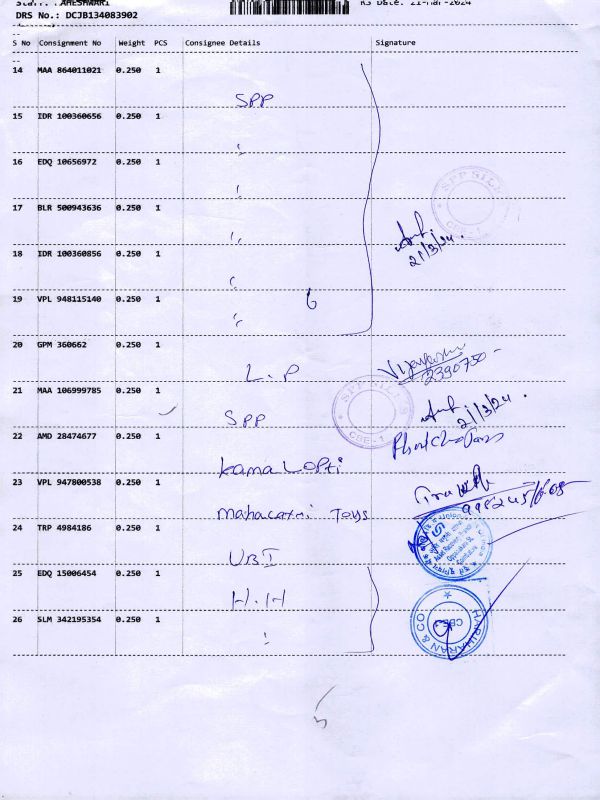 MAHESHWARI
RS Date: 21-Mar-2024
DRS No.: DCJB134083902
S No Consignment No Weight PCS Consignee Details Signature
14 MAA 864011021 0.250 1
SPP
15 IDR 100360656 0.250 1
16 EDQ 10656972 0.250 1
17 BLR 500943636 0.250 1
21/3/24.
18 IDR 100360856 0.250 1
19 VPL 948115140 0.250 1
6
20 GPM 360662 0.250 1
L.P
2390750
21 MAA 106999785 0.250 1
SPP
21/3/24.
22 AMD 28474677 0.250 1
kamal opti
23 VPL 947800538 0.250 1
mahalaxmi Toys
24 TRP 4984186 0.250 1
UBI
25 EDQ 15006454 0.250 1
H.H
26 SLM 342195354 0.250 1
SPP SILKS
CBE-1
SPP SILKS
CBE-1
HARIHARAN & CO
CBE